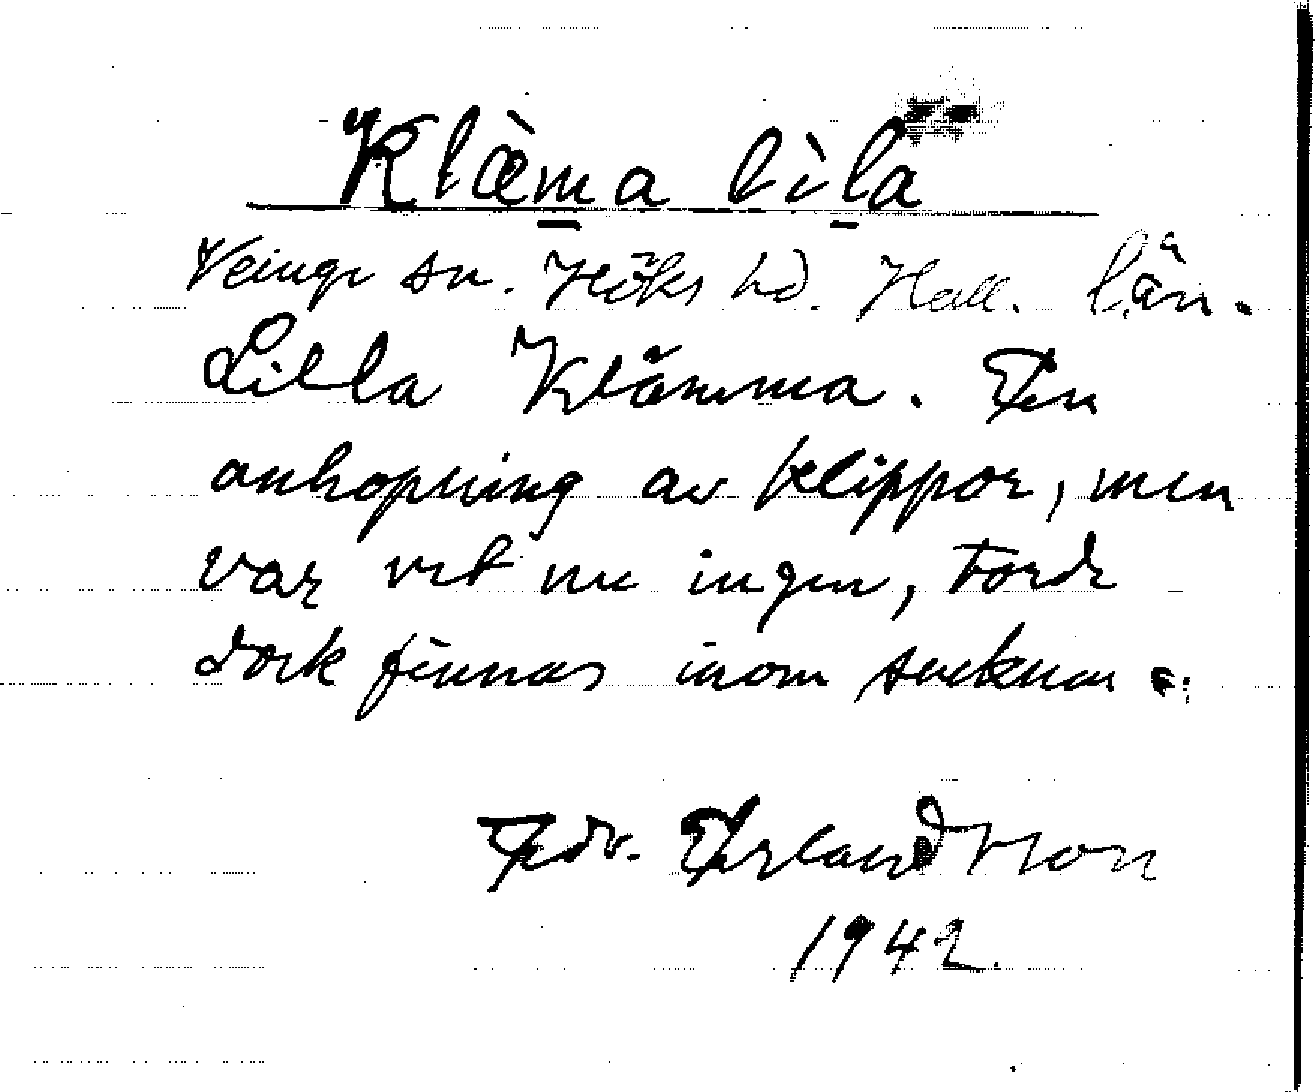 Klæ̀ma lìla
Veinge sn. Höks hd. Hall. län.
Lilla Klämma. En
anhopning av klippor, men
var vet nu ingen, torde
dock finnas inom socknen.
Edv. Erlandsson
1942.